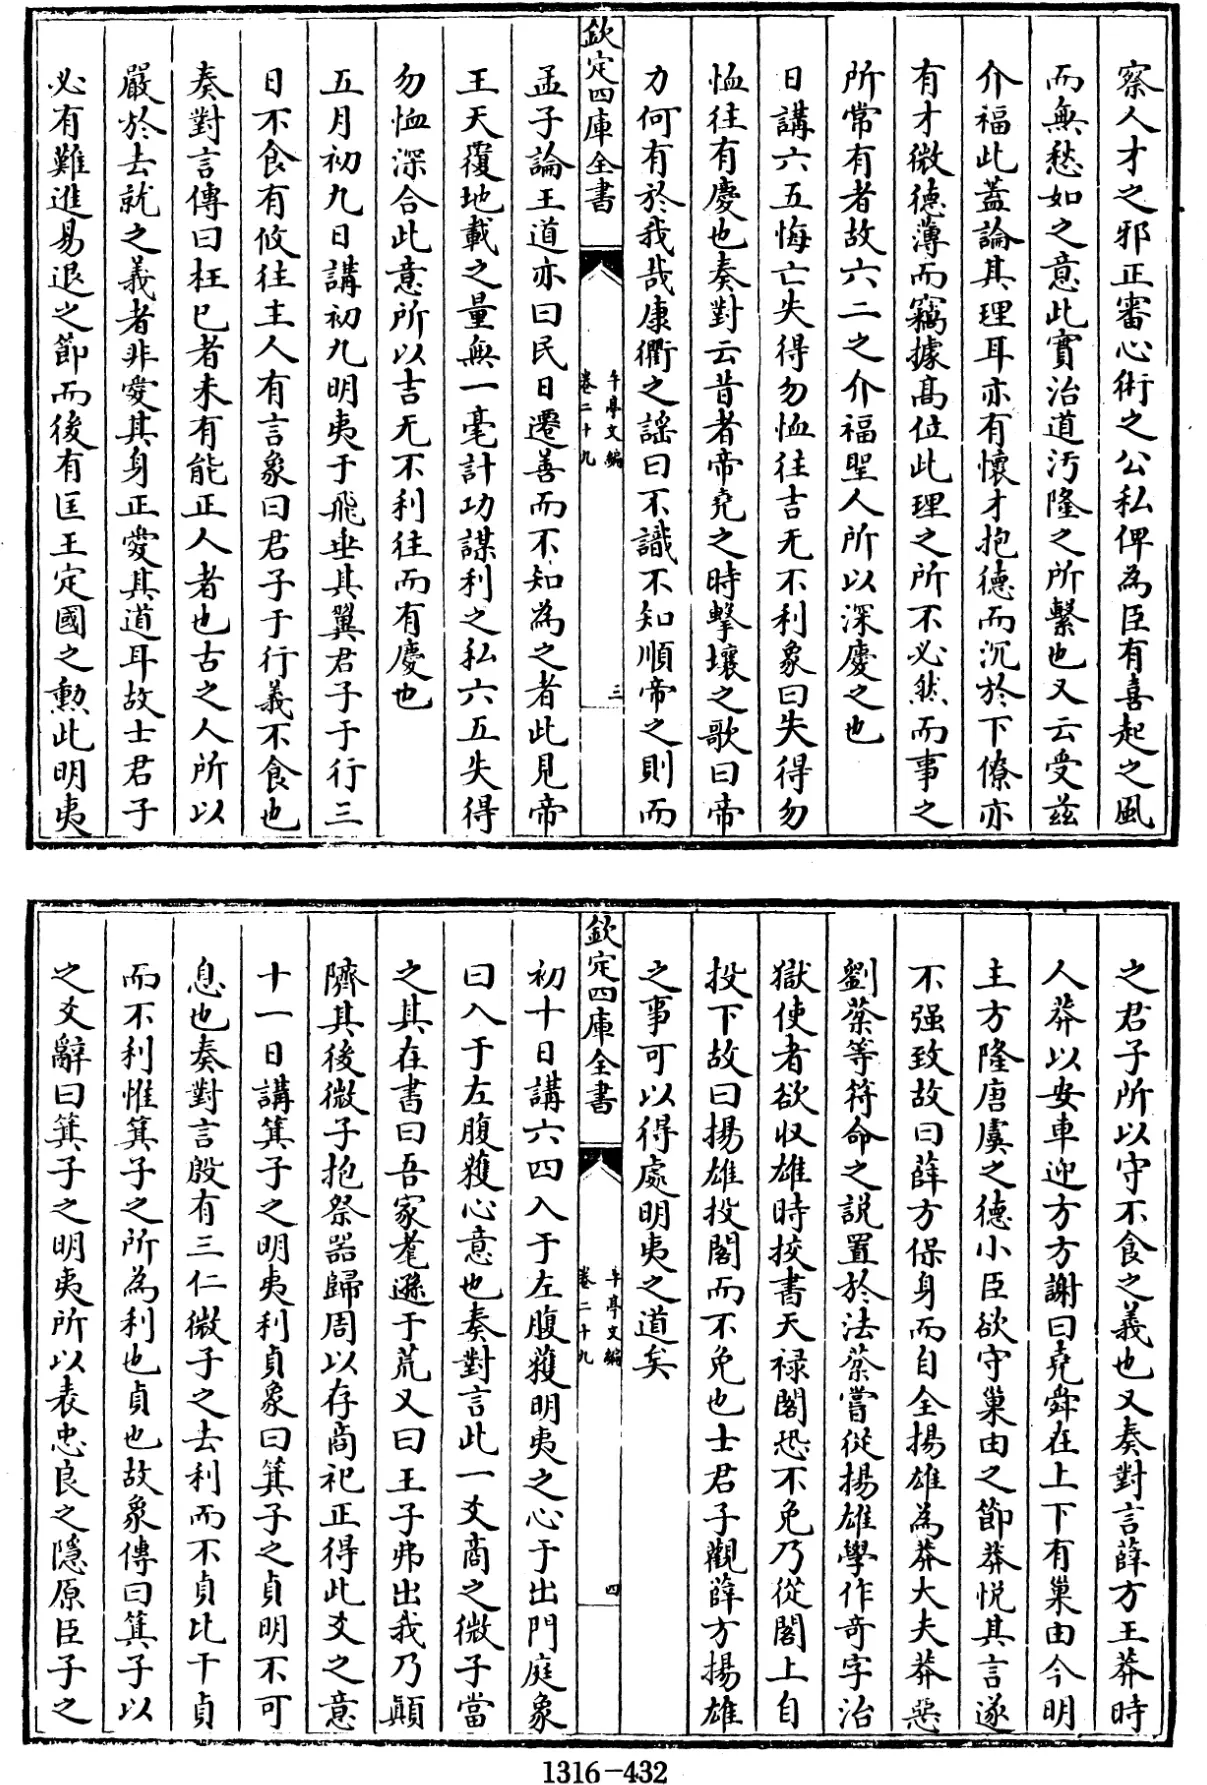 察人才之邪正審心術之公私俾為臣有喜起之風
而無愁如之意此實治道汚隆之所繫也又云受茲
介福此蓋論其理耳亦有懷才抱德而沉於下僚亦
有才微德薄而竊據髙位此理之所不必然而事之
所常有者故六二之介福聖人所以深慶之也
日講六五悔亡失得勿恤往吉无不利象曰失得勿
恤往有慶也奏對云昔者帝堯之時擊壤之歌曰帝
力何有於我哉康衢之謡曰不識不知順帝之則而
欽定四庫全書
午亭文編
卷二十九
三
孟子論王道亦曰民日遷善而不知為之者此見帝
王天覆地載之量無一毫計功謀利之私六五失得
勿恤深合此意所以吉无不利往而有慶也
五月初九日講初九明夷于飛垂其翼君子于行三
日不食有攸往主人有言象曰君子于行義不食也
奏對言傳曰枉已者未有能正人者也古之人所以
嚴於去就之義者非愛其身正愛其道耳故士君子
必有難進易退之節而後有匡王定國之勲此明夷
之君子所以守不食之義也又奏對言薛方王莽時
人莽以安車迎方方謝曰堯舜在上下有巢由今明
主方隆唐虞之德小臣欲守巢由之節莽悦其言遂
不强致故曰薛方保身而自全揚雄為莽大夫莽惡
劉棻等符命之説置於法棻嘗從揚雄學作奇字治
獄使者欲收雄時挍書天禄閣恐不免乃從閣上自
投下故曰揚雄投閣而不免也士君子觀薛方揚雄
之事可以得處明夷之道矣
欽定四庫全書
午亭文編
卷二十九
四
初十日講六四入于左腹獲明夷之心于出門庭象
曰入于左腹獲心意也奏對言此一爻商之微子當
之其在書曰吾家耄遜于荒又曰王子弗出我乃顚
隮其後微子抱祭器歸周以存商祀正得此爻之意
十一日講箕子之明夷利貞象曰箕子之貞明不可
息也奏對言殷有三仁微子之去利而不貞比干貞
而不利惟箕子之所為利也貞也故象傳曰箕子以
之爻辭曰箕子之明夷所以表忠良之隱原臣子之
1316-432